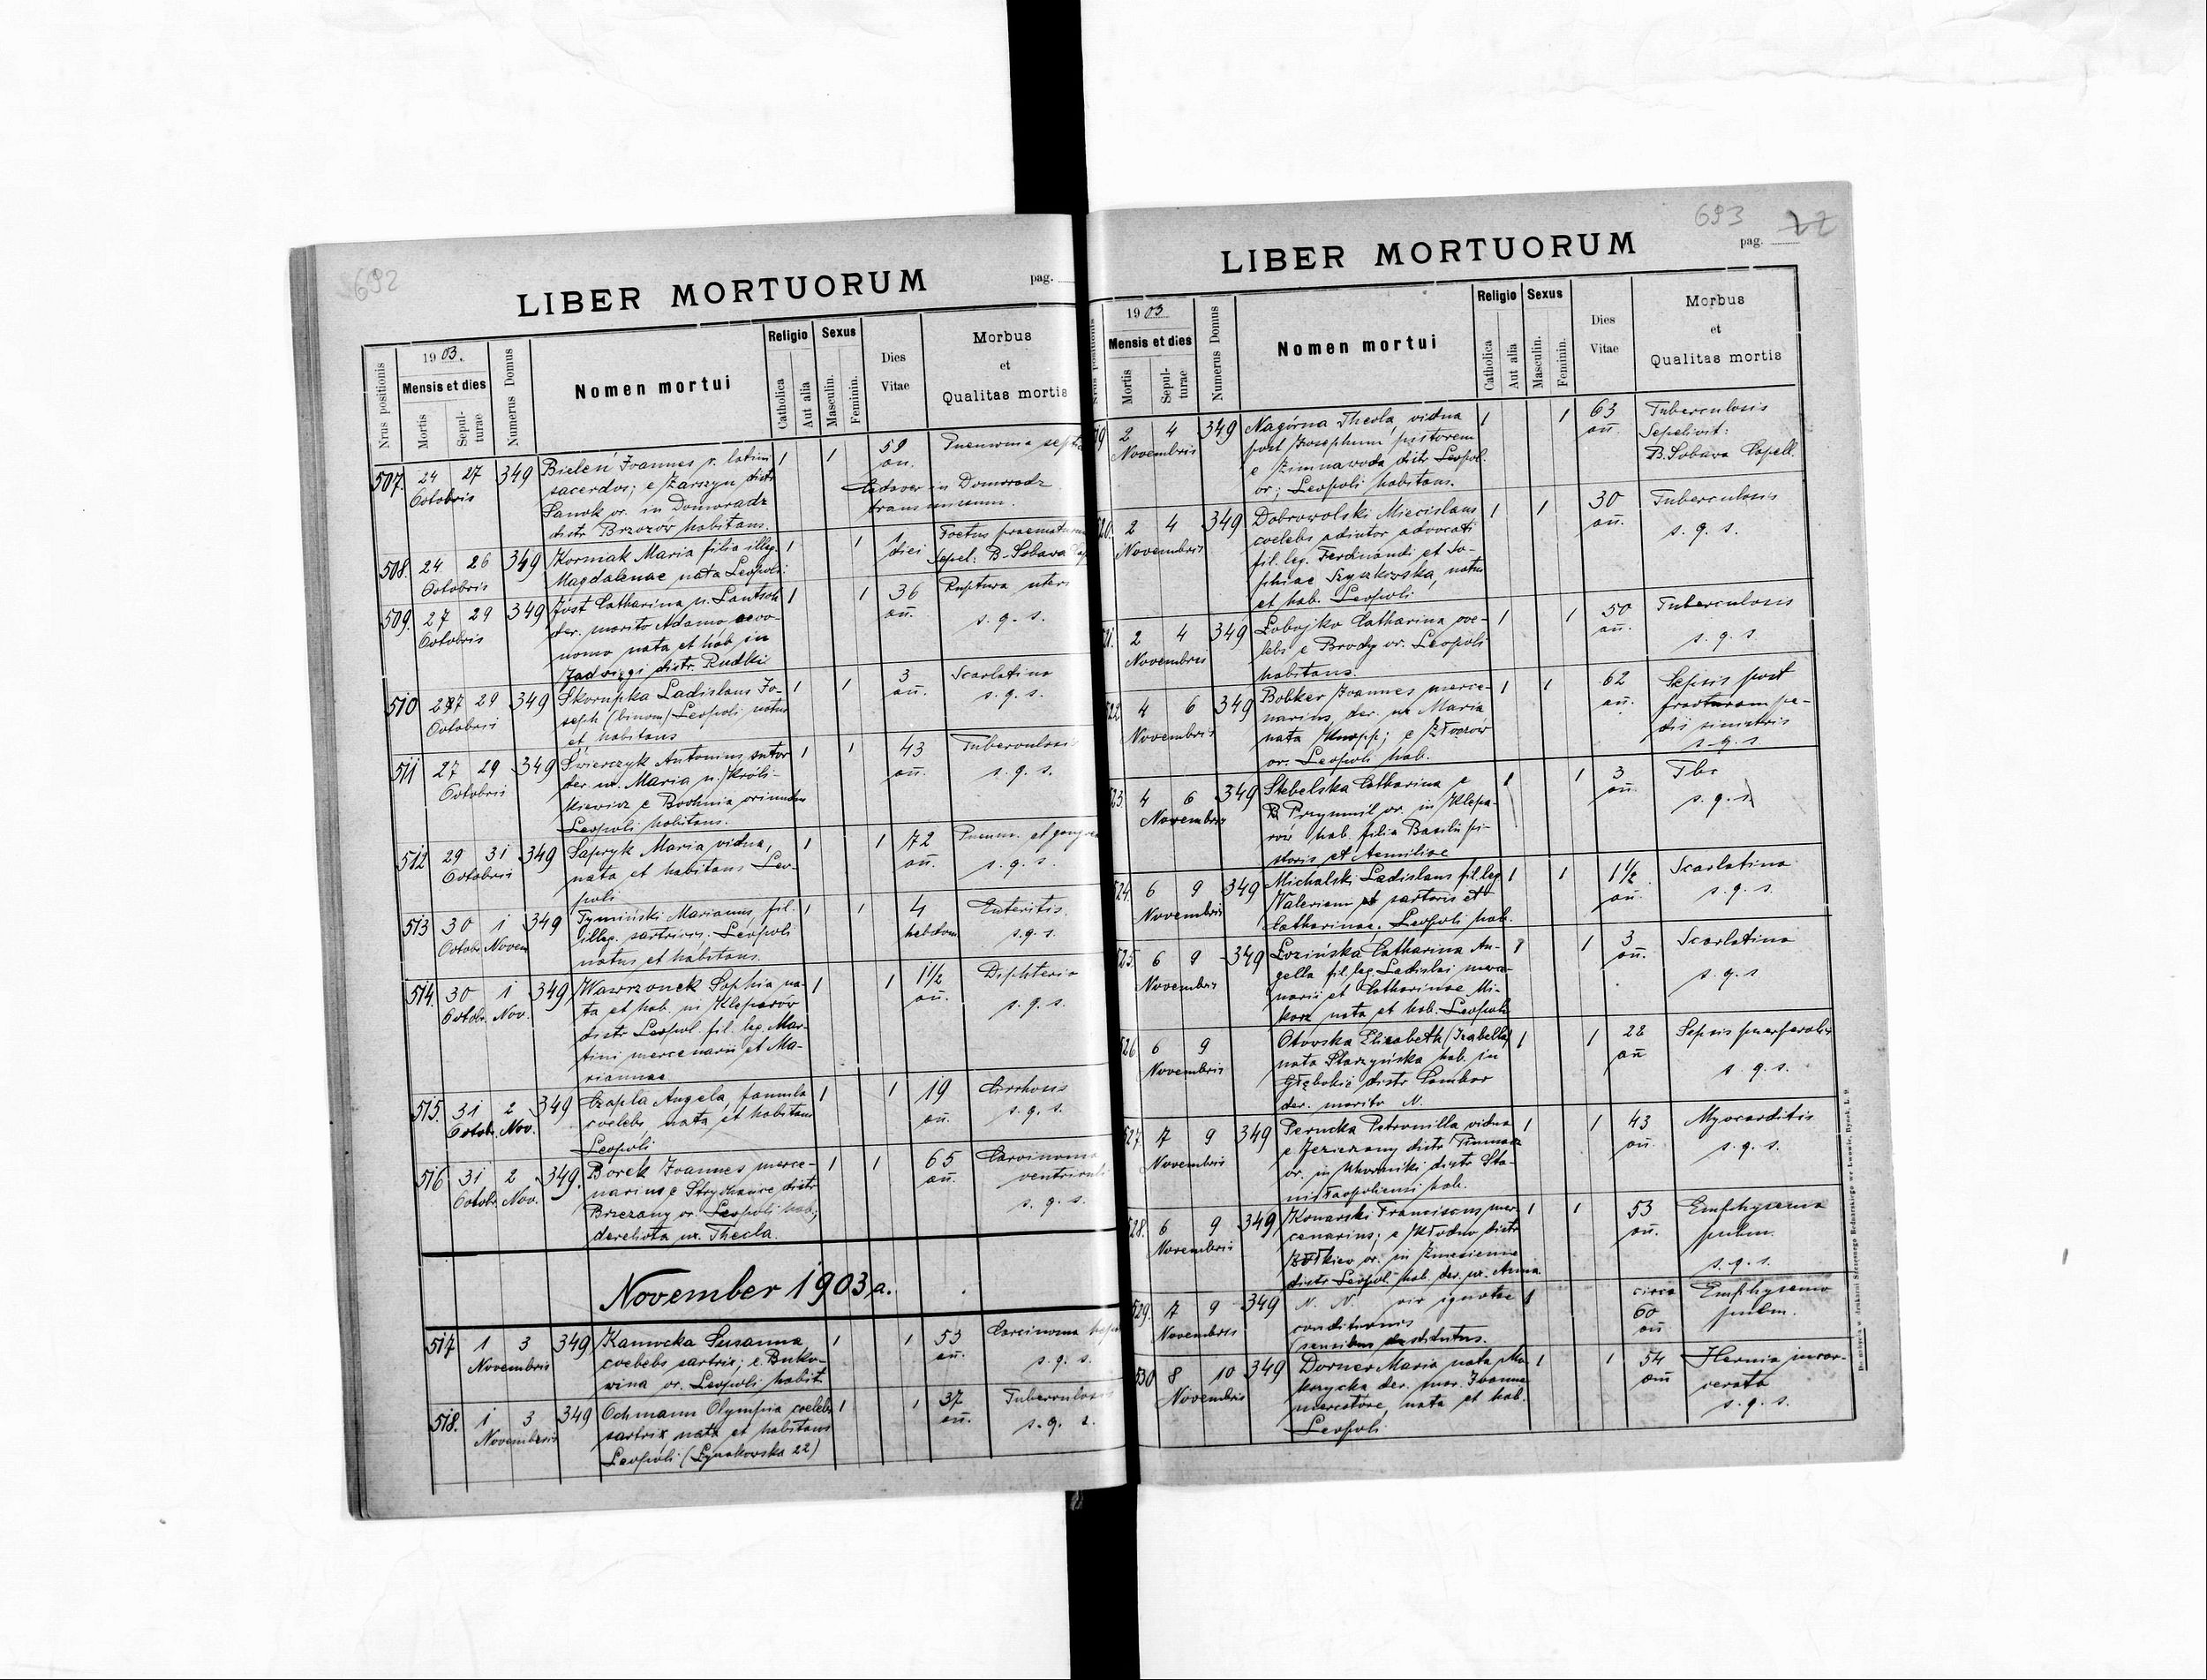 692
LIBER MORTUORUM
pag.
Nrus positionis
1903.
Mensis et dies
Mortis
Sepul-
turae
Numerus Domus
Nomen mortui
Religio
Catholica
Aut alia
Sexus
Masculin.
Feminin.
Dies
Vitae
Morbus
et
Qualitas mortis
507. 24 27 349 Bieleń Joannes r. latini 1 1 59 Pneumonia
Octobris sacerdos; e Zarszyn distr. an.
Sanok or. in Domoradz Cadaver in Domoradz
distr. Brzozów habitans. transmissum.
508. 24 26 349 Kormak Maria filia illeg. 1 1 1 Foetus
Octobris Magdalenae nata Leopoli. diei Sepel. B. Sobawa
509. 27 29 349 Jost Catharina n. Lantsch 1 1 36 Ruptura uteri
Octobris der. marito Adamo oeco- an̄. s. q. s.
nomo nata et hab. in
Jadwigi distr. Rudki
510 27 29 349 Skorupka Ladislaus Jo- 1 1 3 Scarlatina
Octobris seph (binom) Leopoli natus an̄. s. q. s.
et habitans
511 27 29 349 Świerczyk Antonius sutor 1 1 43 Tuberculosis
Octobris der. ux. Maria n. Króli- an̄. s. q. s.
kiewicz e Bochnia oriundus
Leopoli habitans.
512 29 31 349 Sapryk Maria vidua, 1 1 72 Pneum. et
Octobris nata et habitans Leo- an̄. s. q. s.
poli
513 30 1 349 Tymiński Marianus, fil. 1 1 4 Enteritis
Octobr. Novem illeg. sartricis. Leopoli hebdom s. q. s.
natus et habitans.
514. 30 1 349 Wawrzonek Sophia na- 1 1 1½ Diphteria
Octobr. Nov. ta et hab. in Kleparów an̄. s. q. s.
distr. Leopol. fil. leg. Mar-
tini mercenarii et Ma-
riannae
515. 31 2 349 Czapla Angela, famula 1 1 19 Cirrhosis
Octobr. Nov. coelebs, nata et habitans an̄. s. q. s.
Leopoli
516 31 2 349. Borek Joannes merce- 1 1 65 Carcinoma
Octobr. Nov. narius e Stryhańce distr. an̄. ventriculi
Brzeżany or. Leopoli hab; s. q. s.
derelicta ux. Thecla.
November 1903 a.
517 1 3 349 Kanocka Susanna 1 1 53 Carcinoma
Novembris coelebs sartrix; e Buko- an̄. s. q. s.
wina or. Leopoli habit
518. 1 3 349 Ochmann Olympia coelebs 1 1 37 Tuberculosis
Novembris sartrix nata et habitans an̄. s. q. s.
Leopoli (Łyczakowska 22)
693
LIBER MORTUORUM
pag.
Nrus positionis
1903
Mensis et dies
Mortis
Sepul-
turae
Numerus Domus
Nomen mortui
Religio
Catholica
Aut alia
Sexus
Masculin.
Feminin.
Dies
Vitae
Morbus
et
Qualitas mortis
19 2 4 349 Nagórna Thecla, vidua 1 1 63 Tuberculosis
Novembris post Josephum pistorem an̄. Sepelivit:
e Zimnawoda distr. Leopol. B. Sobawa Capell.
or; Leopoli habitans.
20. 2 4 349 Dobrowolski Miecislaus 1 1 30 Tuberculosis
Novembris coelebs adiutor advocati an̄. s. q. s.
fil. leg. Ferdinandi et So-
phiae Szyszkowska, natus
et hab. Leopoli
21. 2 4 349 Łobojko Catharina coe- 1 1 50 Tuberculosis
Novembris lebs e Brody or. Leopoli an̄. s. q. s.
habitans.
522 4 6 349 Bobker Joannes merce- 1 1 62 Sepsis post
Novembris narius, der. ux. Maria an̄. fracturam pe-
nata Knopp; e Złoczów dis sinistris
or. Leopoli hab. s. q. s.
523. 4 6 349 Stebelska Catharina e 1 1 3 Tbc
Novembris Przymił or. in Klepa- an̄. s. q. s.
rów hab. filia Basilii pi-
storis et Aemiliae
524. 6 9 349 Michalski Ladislaus fil. leg 1 1 1½ Scarlatina
Novembris Valeriani sartoris et an̄. s. q. s.
Catharinae. Leopoli hab.
525. 6 9 349 Łozińska Catharina An- 1 1 3 Scarlatina
Novembris gella fil. leg. Ladislai merce- an̄. s. q. s
narii et Catharinae Mi-
korz nata et hab. Leopoli
526 6 9 Otowska Elisabeth (Izabella) 1 1 22 Sepsis puerperalis
Novembris nata Starzyńska hab. in an̄ s. q. s.
Głębokie distr. Sambor
der. marito N.
527. 7 9 349 Perucka Petronilla vidua 1 1 43 Myocarditis
Novembris e Jezierzany distr. Tłumacz an̄. s. q. s.
or. in Uhorniki distr. Sta-
nisłaopoliensi hab.
528. 6 9 349 Konarski Franciscus mer- 1 1 53 Emphysema
Novembris cenarius; e Kłodno distr. an̄. pulm.
Żółkiew or. in Zniesienie s. q. s.
distr. Leopol. hab. der. ux. Anna.
529. 7 9 349 N. N. vir ignotae 1 circa Emphysema
Novembris conditionis 60 pulm.
(sensibus destitutus. an̄
530 8 10 349 Dorner Maria nata Mo- 1 1 54 Hernia incar-
Novembris krzycka der. mar. Joanne an̄ cerata
mercatore, nata et hab. s. q. s.
Leopoli.